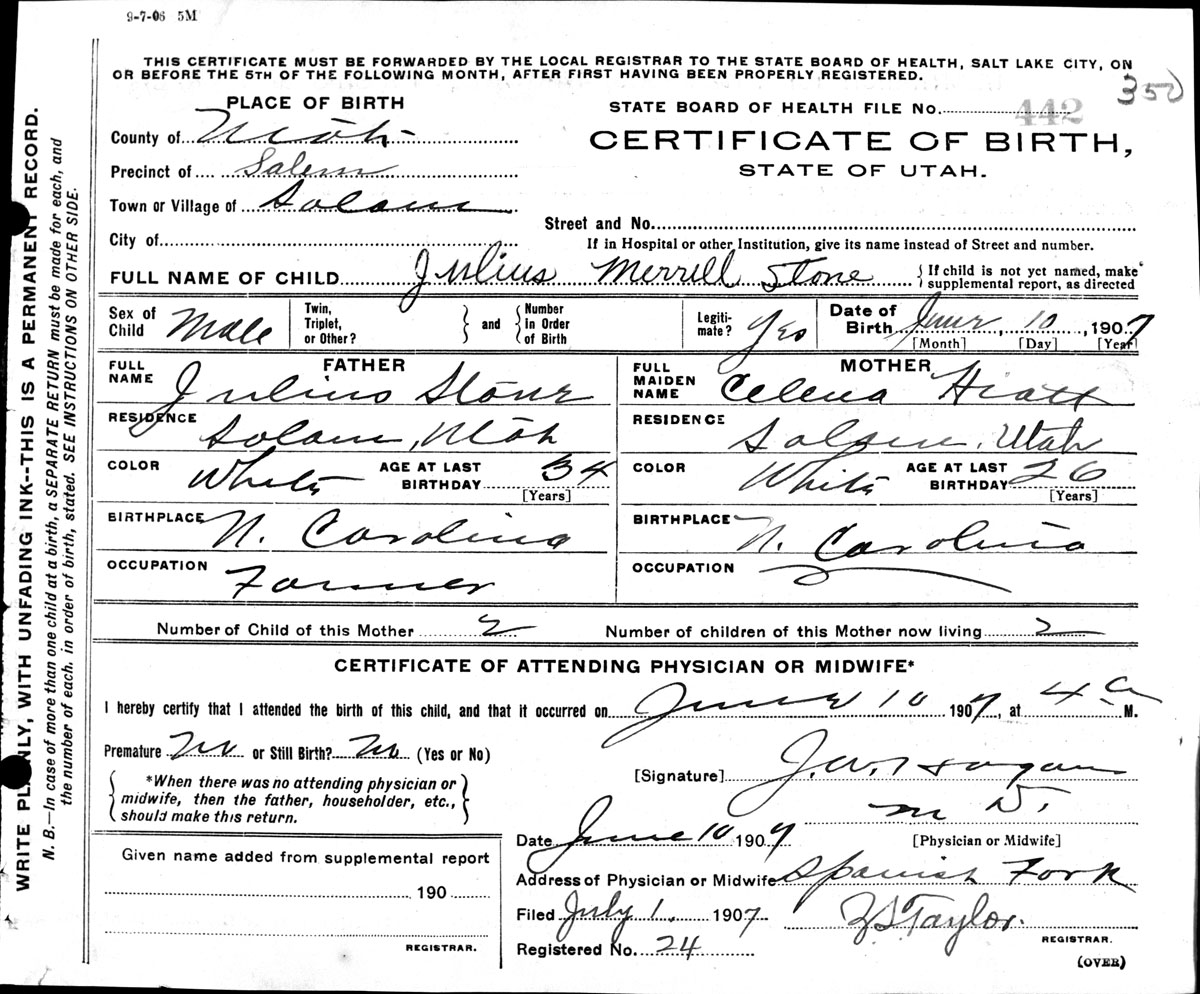 9-7-06 5M
THIS CERTIFICATE MUST BE FORWARDED BY THE LOCAL REGISTRAR TO THE STATE BOARD OF HEALTH, SALT LAKE CITY, ON
OR BEFORE THE 5TH OF THE FOLLOWING MONTH, AFTER FIRST HAVING BEEN PROPERLY REGISTERED.
350
PLACE OF BIRTH
STATE BOARD OF HEALTH FILE No. 442
County of Utah
CERTIFICATE OF BIRTH,
Precinct of Salem
STATE OF UTAH.
Town or Village of Salem
Street and No.
City of
If in Hospital or other Institution, give its name instead of Street and number.
FULL NAME OF CHILD Julius Merrill Stone
{ If child is not yet named, make
supplemental report, as directed
Sex of Child Male
Twin, Triplet, or Other? } and { Number in Order of Birth
Legiti-mate? Yes
Date of Birth June 10, 1907
[Month] [Day] [Year]
FATHER
FULL NAME Julius Stone
RESIDENCE Salem, Utah
COLOR White AGE AT LAST BIRTHDAY 34
[Years]
BIRTHPLACE N. Carolina
OCCUPATION Farmer
MOTHER
FULL MAIDEN NAME Celena Hiatt
RESIDENCE Salem, Utah
COLOR White AGE AT LAST BIRTHDAY 26
[Years]
BIRTHPLACE N. Carolina
OCCUPATION
Number of Child of this Mother 2 Number of children of this Mother now living 2
CERTIFICATE OF ATTENDING PHYSICIAN OR MIDWIFE*
I hereby certify that I attended the birth of this child, and that it occurred on June 10 1907, at 4 a M.
Premature No or Still Birth? No (Yes or No)
{ *When there was no attending physician or
midwife, then the father, householder, etc.,
should make this return. }
[Signature] J. W. Hagan
M D.
[Physician or Midwife]
Date June 10 1907
Address of Physician or Midwife Spanish Fork
Filed July 1. 1907 Taylor.
REGISTRAR.
Registered No. 24
(OVER)
Given name added from supplemental report
190
REGISTRAR.
WRITE PLAINLY, WITH UNFADING INK--THIS IS A PERMANENT RECORD.
N. B.—In case of more than one child at a birth, a SEPARATE RETURN must be made for each, and
the number of each, in order of birth, stated. SEE INSTRUCTIONS ON OTHER SIDE.